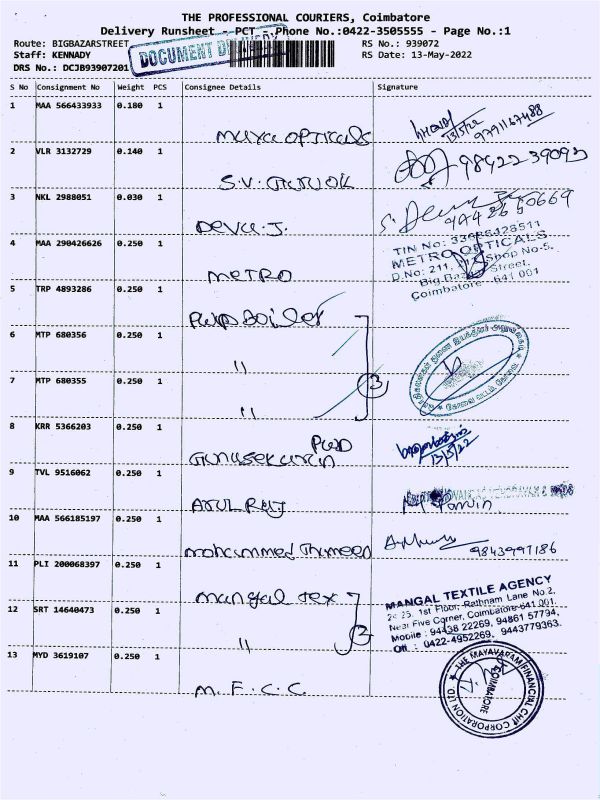 THE PROFESSIONAL COURIERS, Coimbatore
Delivery Runsheet - PCT - Phone No.:0422-3505555 - Page No.:1
Route: BIGBAZARSTREET RS No.: 939072
Staff: KENNADY RS Date: 13-May-2022
DOCUMENT DELIVERY
DRS No.: DCJB93907201
S No Consignment No Weight PCS Consignee Details Signature
1 MAA 566433933 0.180 1
Maya opticals 13/5/22 9791167488
2 VLR 3132729 0.140 1
S.V. 98422 39093
3 NKL 2988051 0.030 1
Deva.J. 9442650669
4 MAA 290426626 0.250 1
METRO
TIN No: 33686428511
METRO OPTICALS
D.No: 211, Shop No-5,
Big Bazaar Street,
Coimbatore - 641 001
5 TRP 4893286 0.250 1
PWD Boiler
6 MTP 680356 0.250 1
"
7 MTP 680355 0.250 1
" 3
8 KRR 5366203 0.250 1
Gunasekaran PWD 13/5/22
9 TVL 9516062 0.250 1
Arul Raj
10 MAA 566185197 0.250 1
mohammed Thameen 9843997186
11 PLI 200068397 0.250 1
mangal tex
MANGAL TEXTILE AGENCY
1st Floor, Rathnam Lane No.2,
Near Five Corner, Coimbatore-641 001.
Mobile : 94438 22269, 94861 57794,
Off. : 0422-4952269, 9443779363.
12 SRT 14640473 0.250 1
" 2
13 MYD 3619107 0.250 1
M.F.C.C.
THE MAYAVARAM FINANCIAL CHIT CORPORATION LTD.
COIMBATORE